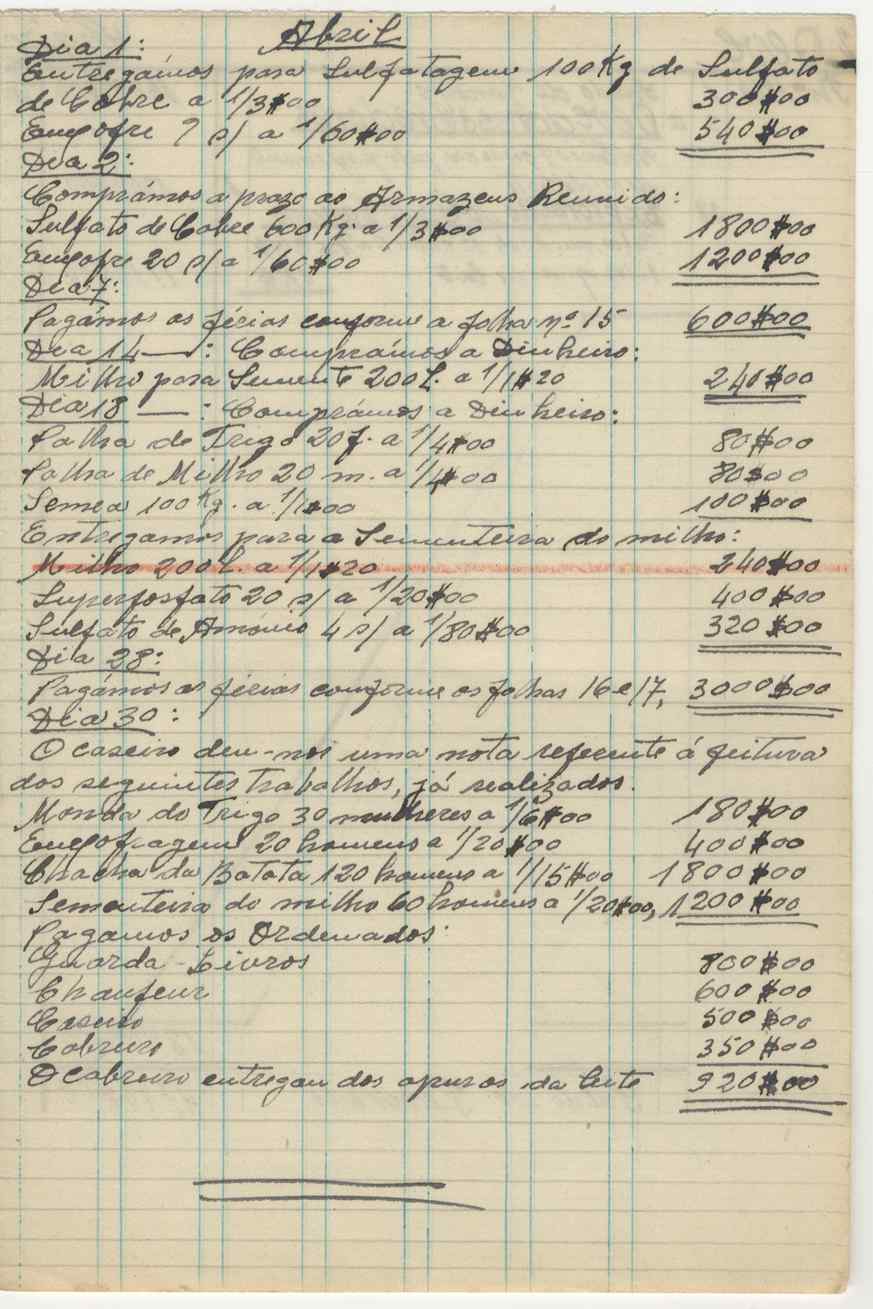 Abril
Dia 1:
Entregámos para Sulfatagem 100 Kg de Sulfato
de Cobre a 1/3$00 300$00
Enxofre 9 s/ a 1/60$00 540$00
Dia 2:
Comprámos a prazo ao Armazens Reunido:
Sulfato de Cobre 600 Kg. a 1/3$00 1800$00
Enxofre 20 s/ a 1/60$00 1200$00
Dia 7:
Pagámos as férias conforme a folha nº 15 600$00
Dia 14 —: Comprámos a Dinheiro:
Milho para Semente 200 L. a 1/1$20 240$00
Dia 18 —: Comprámos a Dinheiro:
Palha de Trigo 20 f. a 1/4$00 80$00
Palha de Milho 20 m. a 1/4$00 80$00
Semea 100 Kg. a 1/1$00 100$00
Entregamos para a Sementeira do milho:
Milho 200 L. a 1/1$20 240$00
Superfosfato 20 s/ a 1/20$00 400$00
Sulfato de Amonio 4 s/ a 1/80$00 320$00
Dia 28:
Pagámos as férias conforme as folhas 16 e 17, 3000$00
Dia 30:
O caseiro deu-nos uma nota referente á feitura
dos seguintes trabalhos, já realizados.
Monda do Trigo 30 mulheres a 1/6$00 180$00
Enxofragem 20 homens a 1/20$00 400$00
Chacha da Batata 120 homens a 1/15$00 1800$00
Sementeira do milho 60 homens a 1/20$00, 1200$00
Pagamos os Ordenados:
Guarda-Livros 800$00
Chaufeur 600$00
Caseiro 500$00
Cabreiro 350$00
O cabreiro entregou dos apuros da leite 920$00